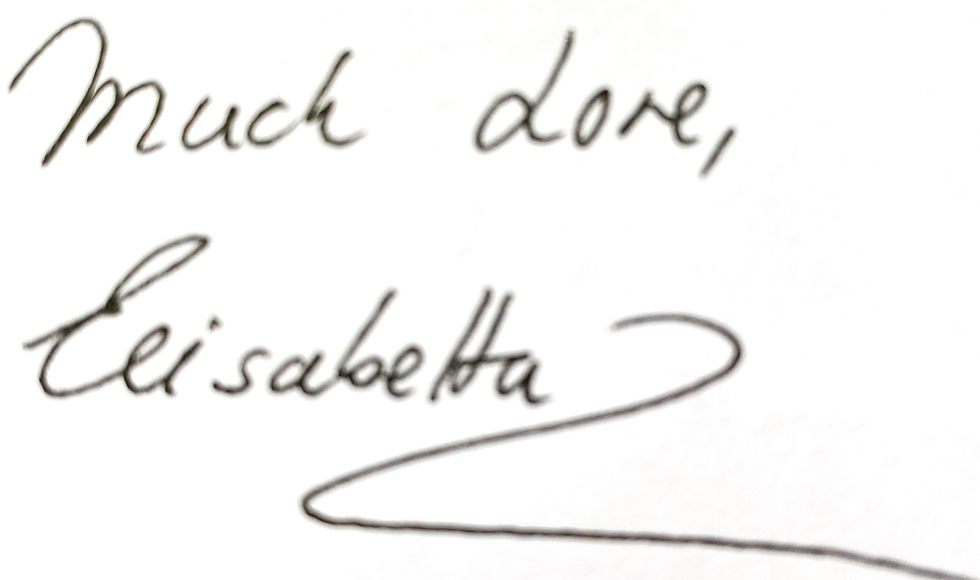 Much Love,
Elisabetta